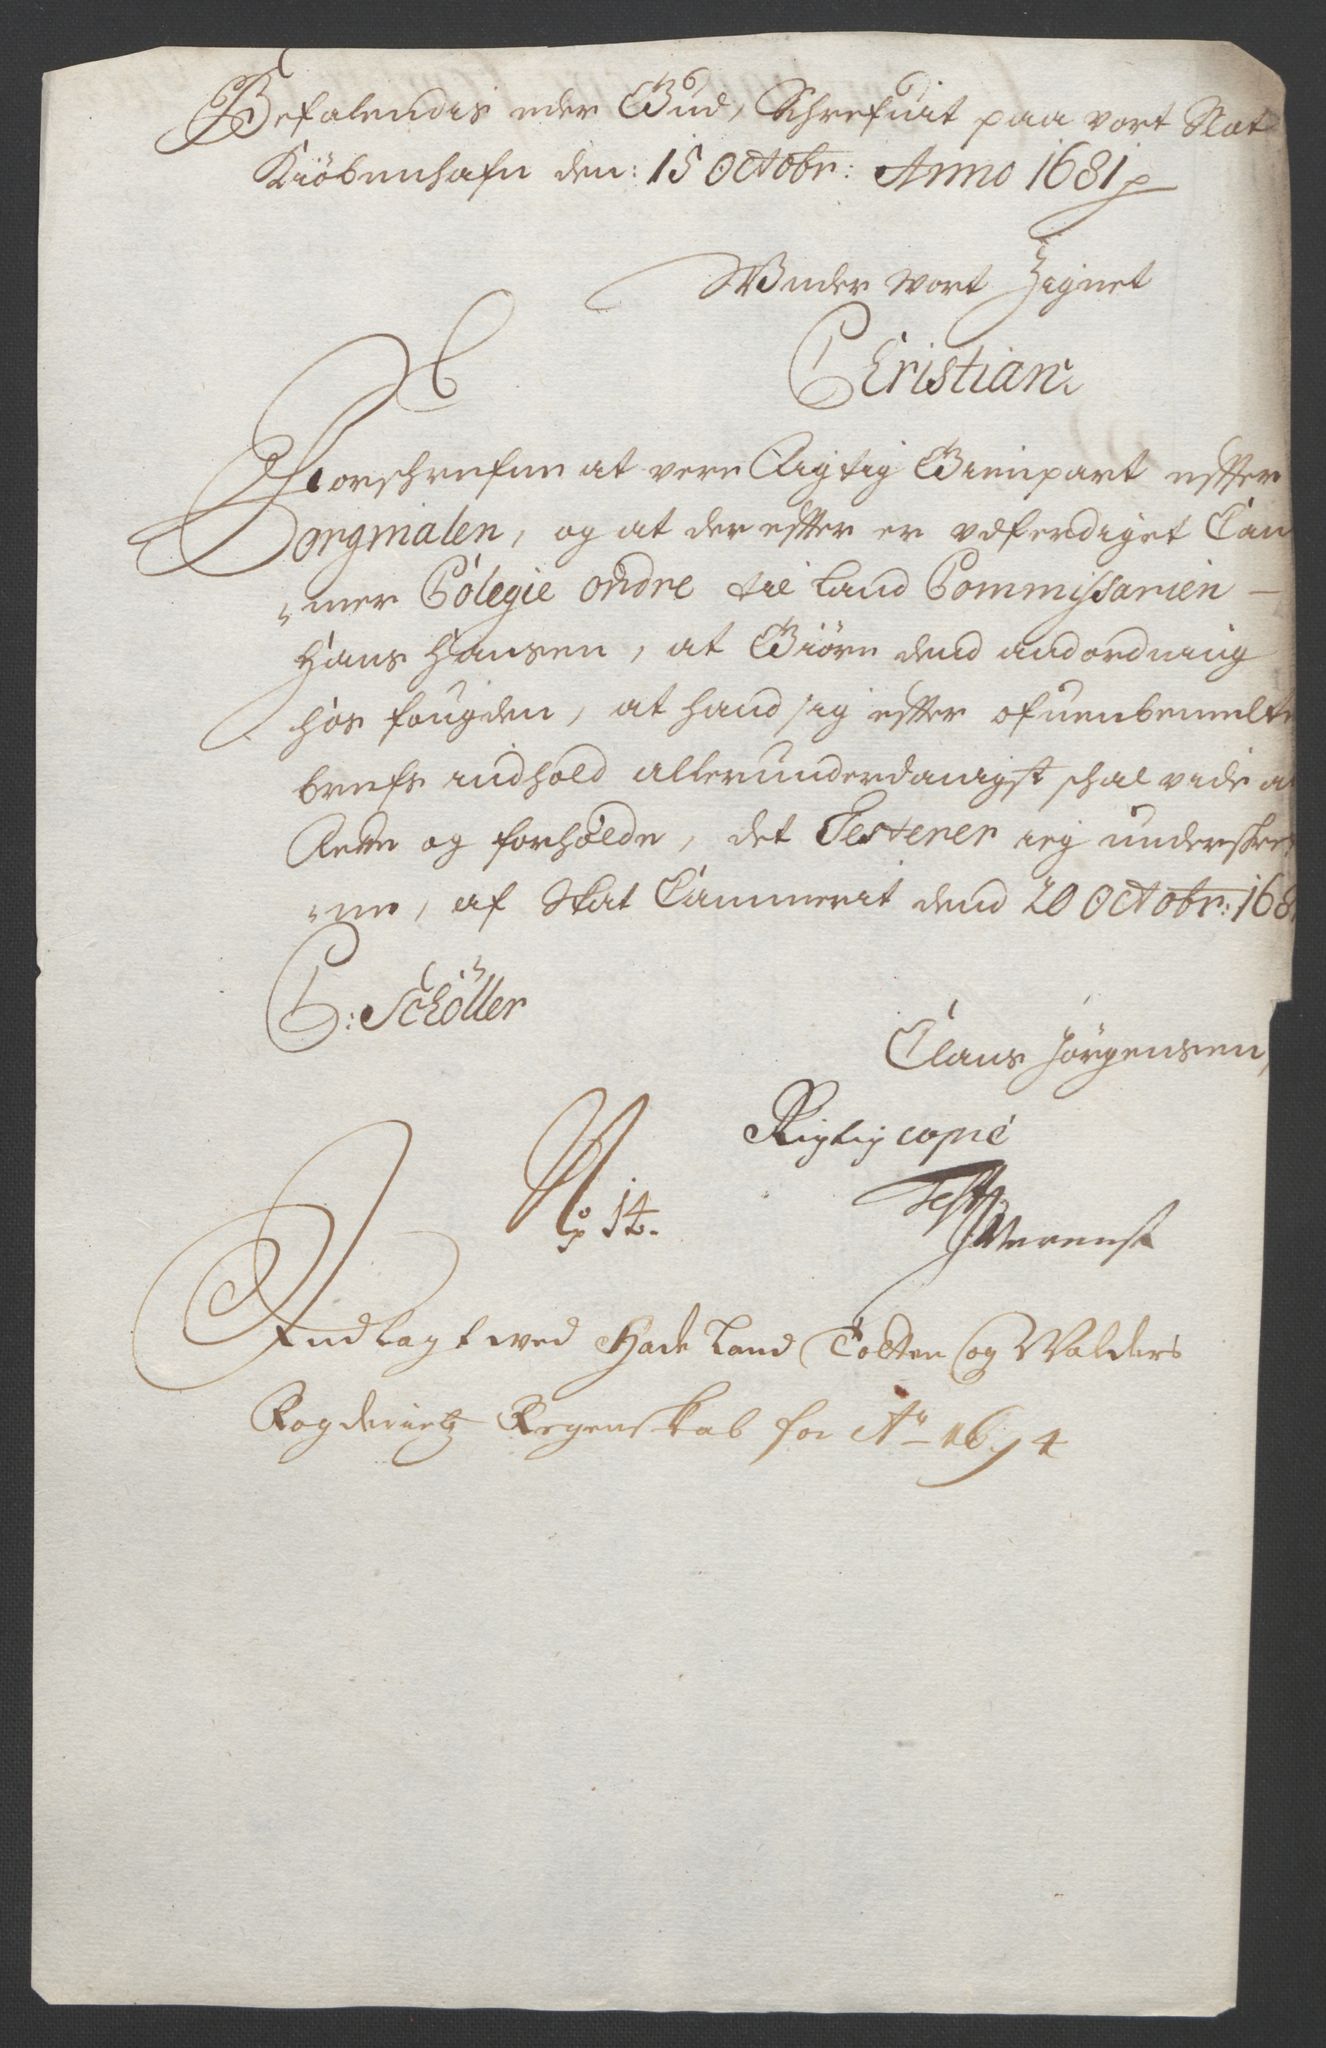 Befalendis eder Gud, Schrefuit paa vort Slot
Kiöbenhafn den: 15 Octobr: Anno 1681
Wnder Wort Zignet
Christian
Forschrefne at vere Rigtig Gienpart effter
Orgmialen, og at der effter er vdferdiget Cam
„mer Colegie ordre til Land Commissarien –
Hans Hansen, at Giöre dend andordning
hos fougden, at hand sig effter ofuenbemelte
brefs indhold allerunderdanigst schal vide at
Rette og forholde, det Testerer ieg underskref
„ne, af Skat Cammerit dend 20 Octobr: 168
C: Schöller
Claus Jörgensen,
Rigtig copie
Test
No 14.
Indlagt wed Hadeland Totten og Walders
Fogderietz Regenskab for Ao 1694